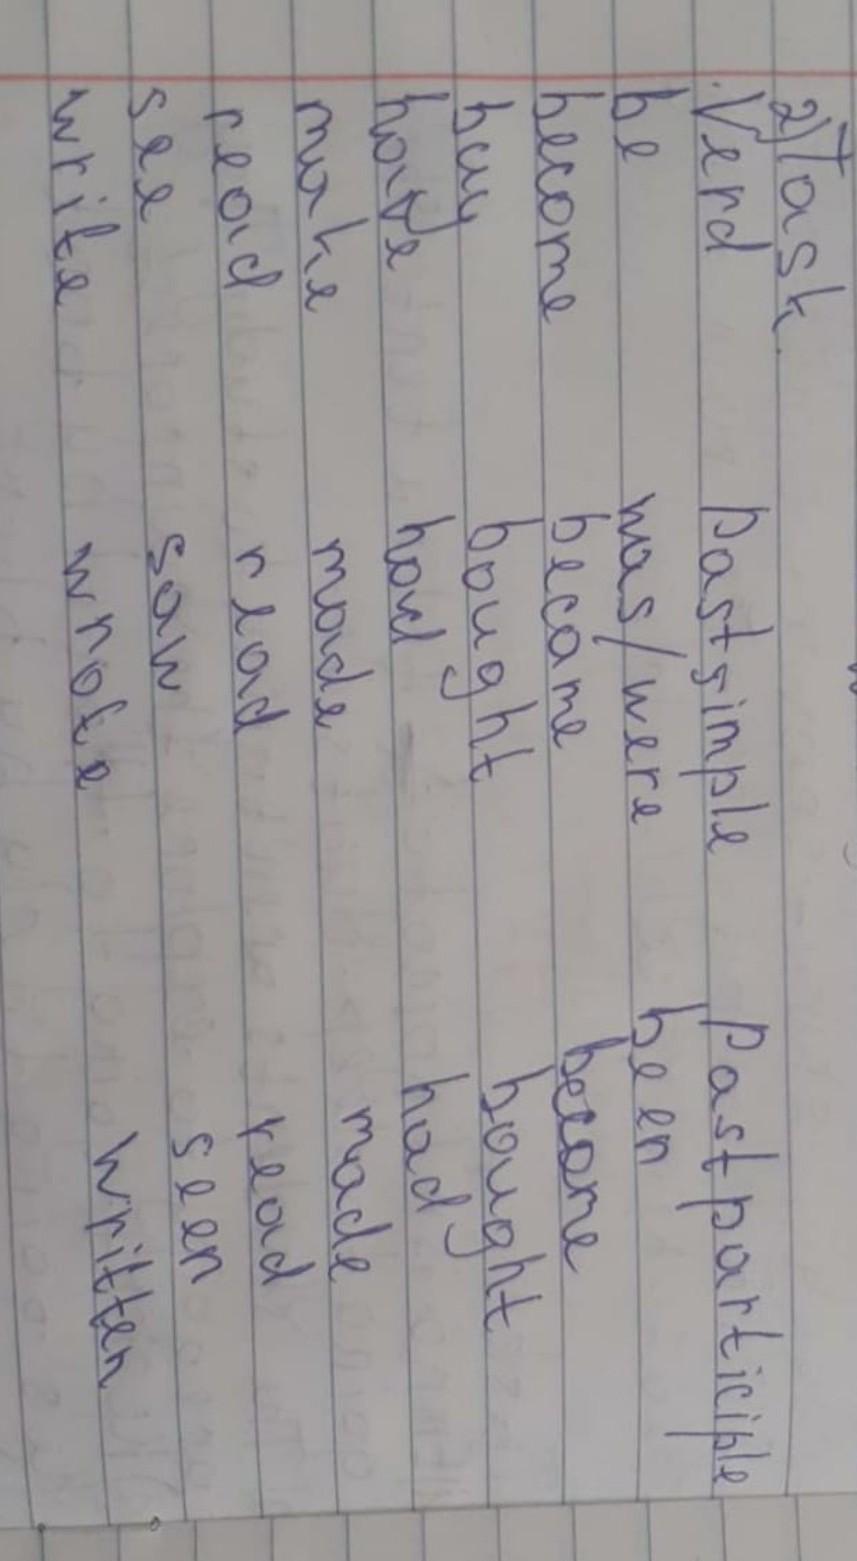 2) Task.
Verd Past simple Past participle
be was/were been
become became become
buy bought bought
have had had
make made made
read read read
see saw seen
write wrote written